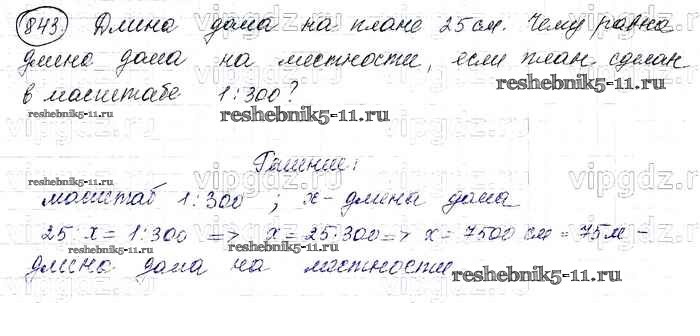 843. Длина дома на плане 25 см. Чему равна
длина дома на местности, если план сделан
в масштабе 1:300?
reshebnik5-11.ru
reshebnik5-11.ru
reshebnik5-11.ru
vipgdz.ru
Решение:
reshebnik5-11.ru
масштаб 1:300 ; х - длина дома
25 : х = 1:300 => х = 25·300 => х = 7500 см = 75 м -
reshebnik5-11.ru
длина дома на местности
reshebnik5-11.ru